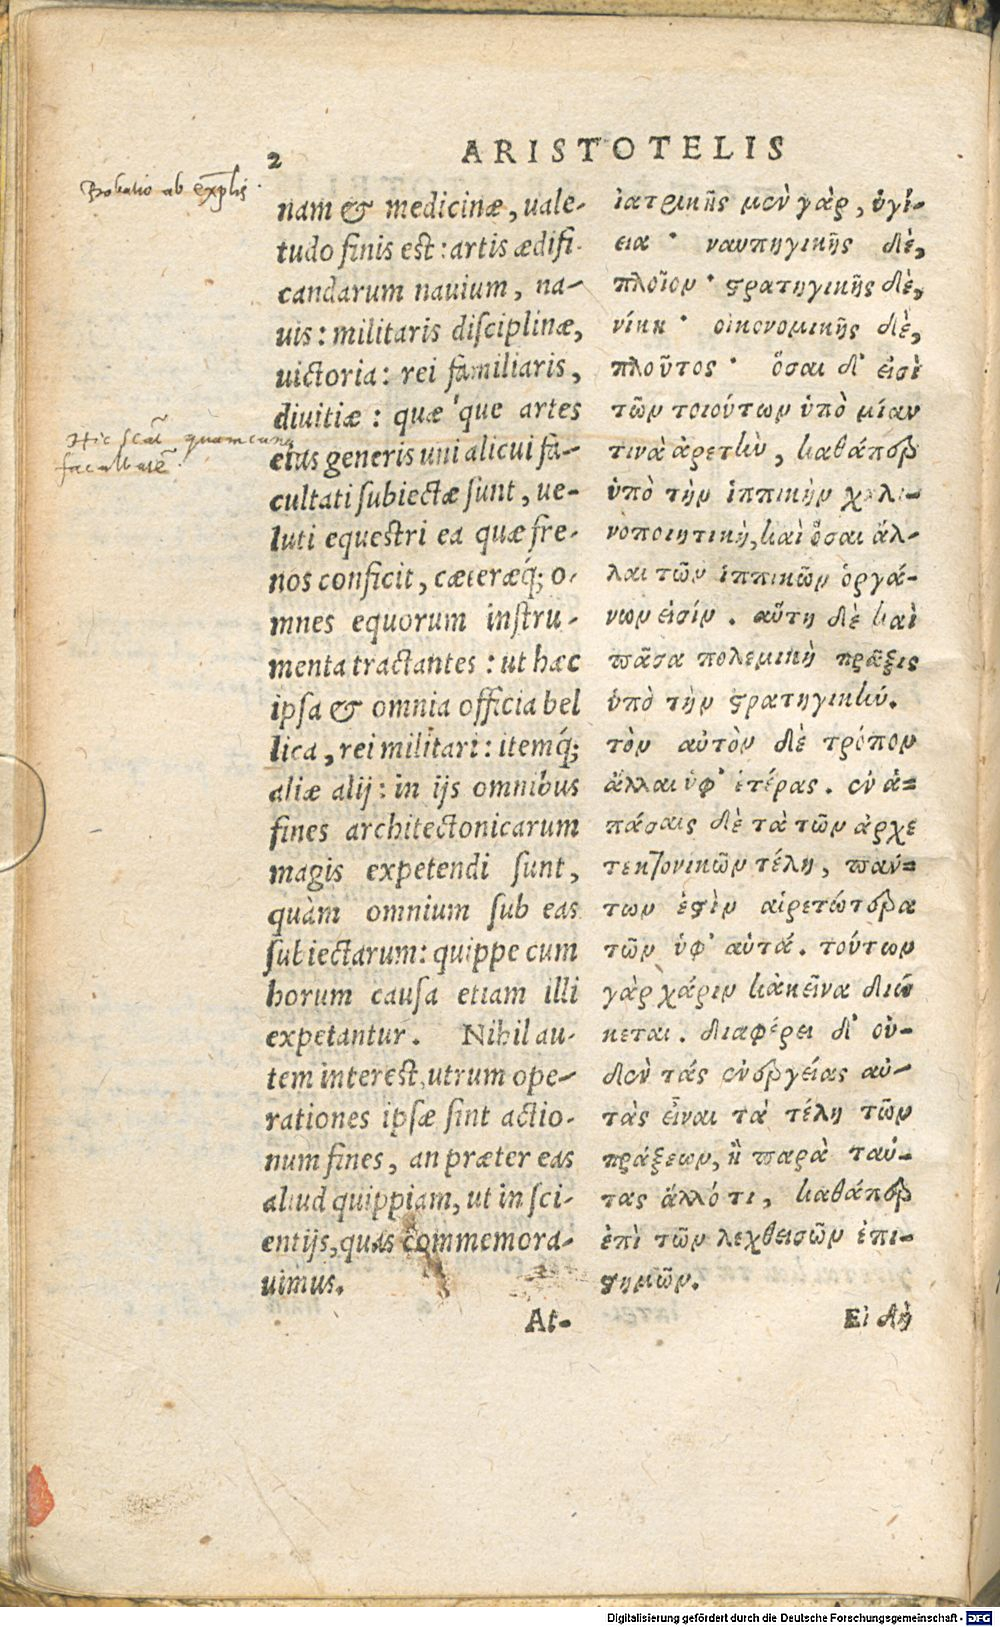 2
ARISTOTELIS
nam & medicinæ, uale-
tudo finis est: artis ædifi-
candarum nauium, na-
uis: militaris disciplinæ,
uictoria: rei familiaris,
diuitiæ: quæ'que artes
eius generis uni alicui fa-
cultati subiectæ sunt, ue-
luti equestri ea quæ fre-
nos conficit, cæteræq́; o-
mnes equorum instru-
menta tractantes: ut hæc
ipsa & omnia officia bel
lica, rei militari: itemq́;
aliæ alij: in ijs omnibus
fines architectonicarum
magis expetendi sunt,
quàm omnium sub eas
subiectarum: quippe cum
horum causa etiam illi
expetantur. Nihil au-
tem interest, utrum ope-
rationes ipsæ sint actio-
num fines, an præter eas
aliud quippiam, ut in sci-
entijs, quas commemora-
uimus.
At-
ἰατρικῆς μὲν γὰρ, ὑγί-
εια· ναυπηγικῆς δὲ,
πλοῖον· στρατηγικῆς δὲ,
νίκη· οἰκονομικῆς δὲ,
πλοῦτος· ὅσαι δ' εἰσὶ
τῶν τοιούτων ὑπὸ μίαν
τινὰ ἀρετὴν, καθάπερ
ὑπὸ τὴν ἱππικὴν χαλι-
νοποιητικὴ, καὶ ὅσαι ἄλ-
λαι τῶν ἱππικῶν ὀργά-
νων εἰσίν. αὕτη δὲ καὶ
πᾶσα πολεμικὴ πρᾶξις
ὑπὸ τὴν στρατηγικήν.
τὸν αὐτὸν δὲ τρόπον
ἄλλαι ὑφ' ἑτέρας. ἐν ἁ-
πάσαις δὲ τὰ τῶν ἀρχε
τεκτονικῶν τέλη, πάν-
των ἐστὶν αἱρετώτερα
τῶν ὑφ' αὑτά. τούτων
γὰρ χάριν κἀκεῖνα διώ
κεται. διαφέρει δ' οὐ-
δὲν τάς ἐνεργείας αὐ-
τὰς εἶναι τὰ τέλη τῶν
πράξεων, ἢ παρὰ ταύ-
τας ἄλλό τι, καθάπερ
ἐπὶ τῶν λεχθεισῶν ἐπι-
στημῶν.
Εἰ δὴ
Hic
Digitalisierung gefördert durch die Deutsche Forschungsgemeinschaft - DFG